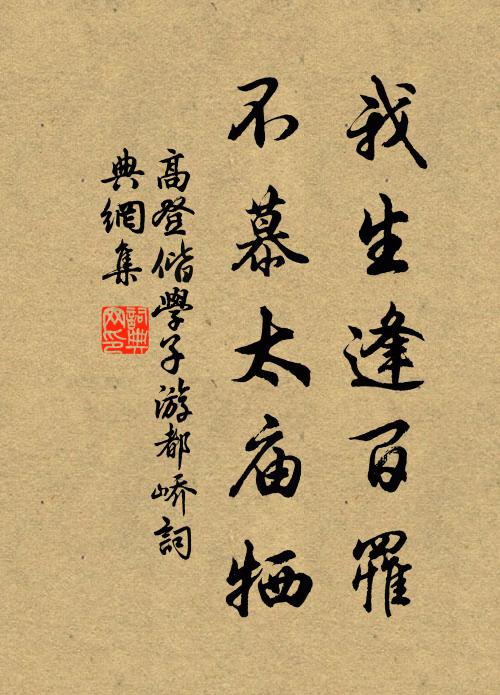 我生逢百罹
不慕太庙牺
高登偕學子游都嶠詞
典網集
詞典
网印